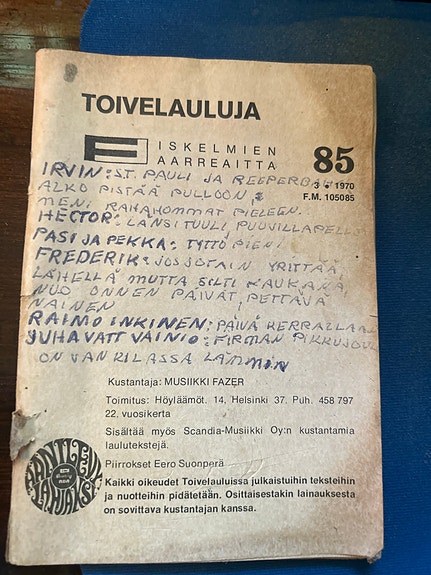 TOIVELAULUJA
ISKELMIEN
AARREAITTA
85
3 • 1970
F.M. 105085
IRVIN: ST. PAULI JA REEPERBAHN
ALKO PISTÄÄ PULLOON,
MENI RAHAHOMMAT PIELEEN.
HECTOR: LÄNSITUULI, PUUVILLAPELLOT
PASI JA PEKKA: TYTTÖ PIENI
FREDERIK: JOS JOTAIN YRITTÄÄ,
LÄHELLÄ MUTTA SILTI KAUKANA,
NUO ONNEN PÄIVÄT, PETTÄVÄ
NAINEN
RAIMO INKINEN: PÄIVÄ KERRALLAAN
JUHA VATT VAINIO: FIRMAN PIKKUJOULU
ON VANKILASSA LÄMMIN
Kustantaja: MUSIIKKI FAZER
Toimitus: Höyläämöt. 14, Helsinki 37. Puh. 458 797
22, vuosikerta
Sisältää myös Scandia-Musiikki Oy:n kustantamia
laulutekstejä.
Piirrokset Eero Suonperä
Kaikki oikeudet Toivelauluissa julkaistuihin teksteihin
ja nuotteihin pidätetään. Osittaisestakin lainauksesta
on sovittava kustantajan kanssa.